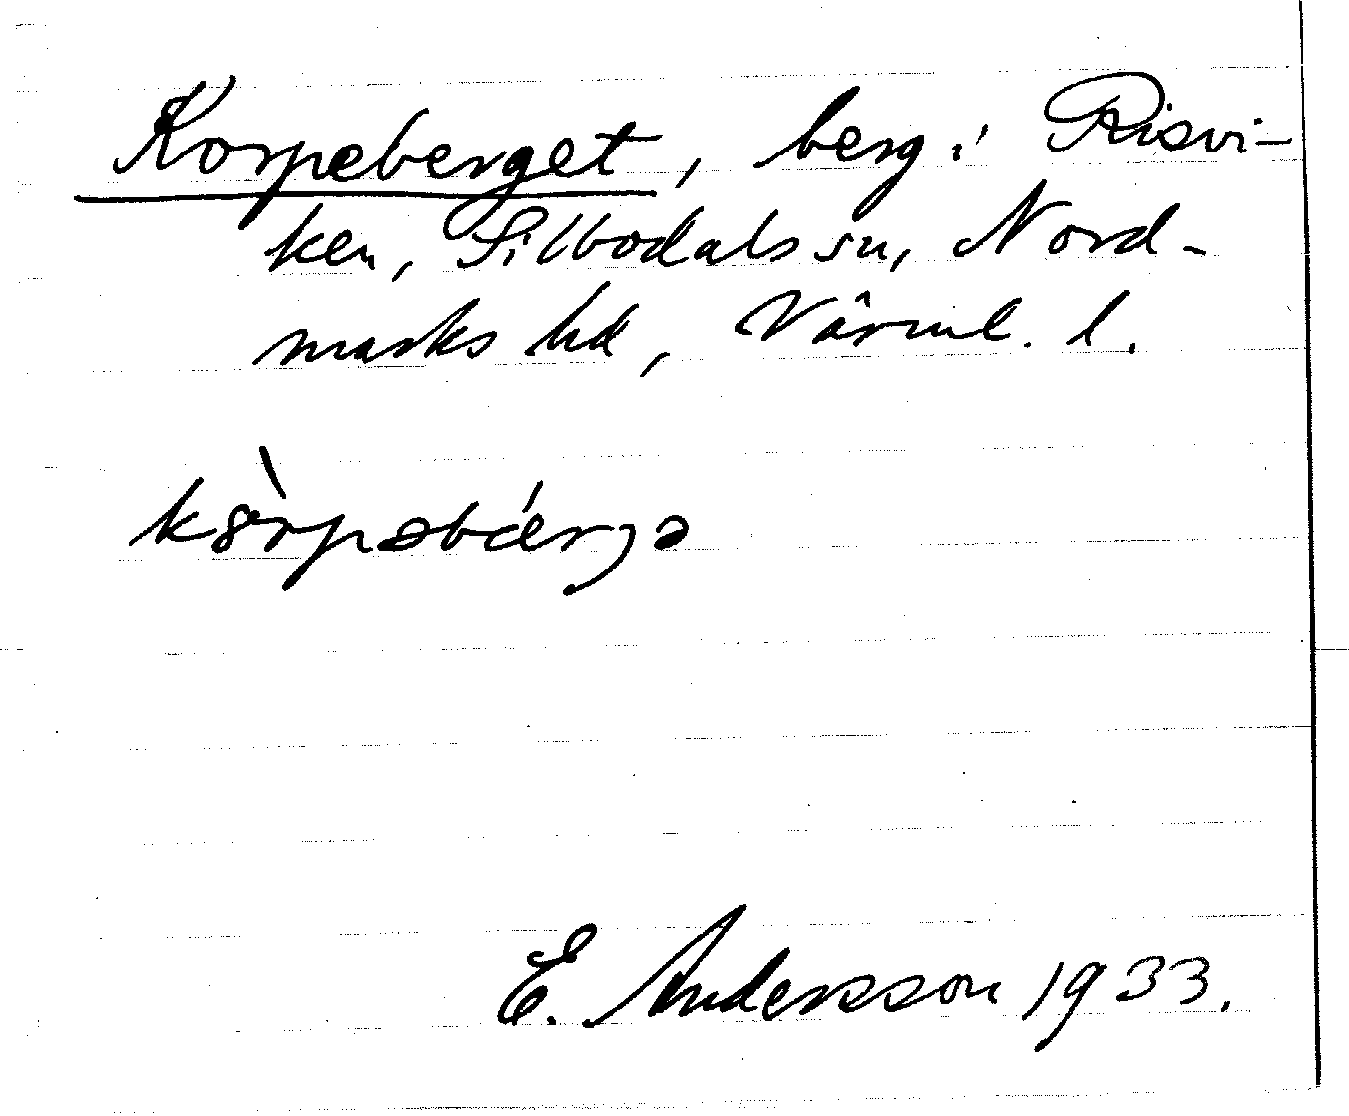 Korpeberget, berg i Risvi-
ken, Silbodals sn, Nord-
marks hd, Värml. l.
kòrpəbǽrjə
E. Andersson 1933.